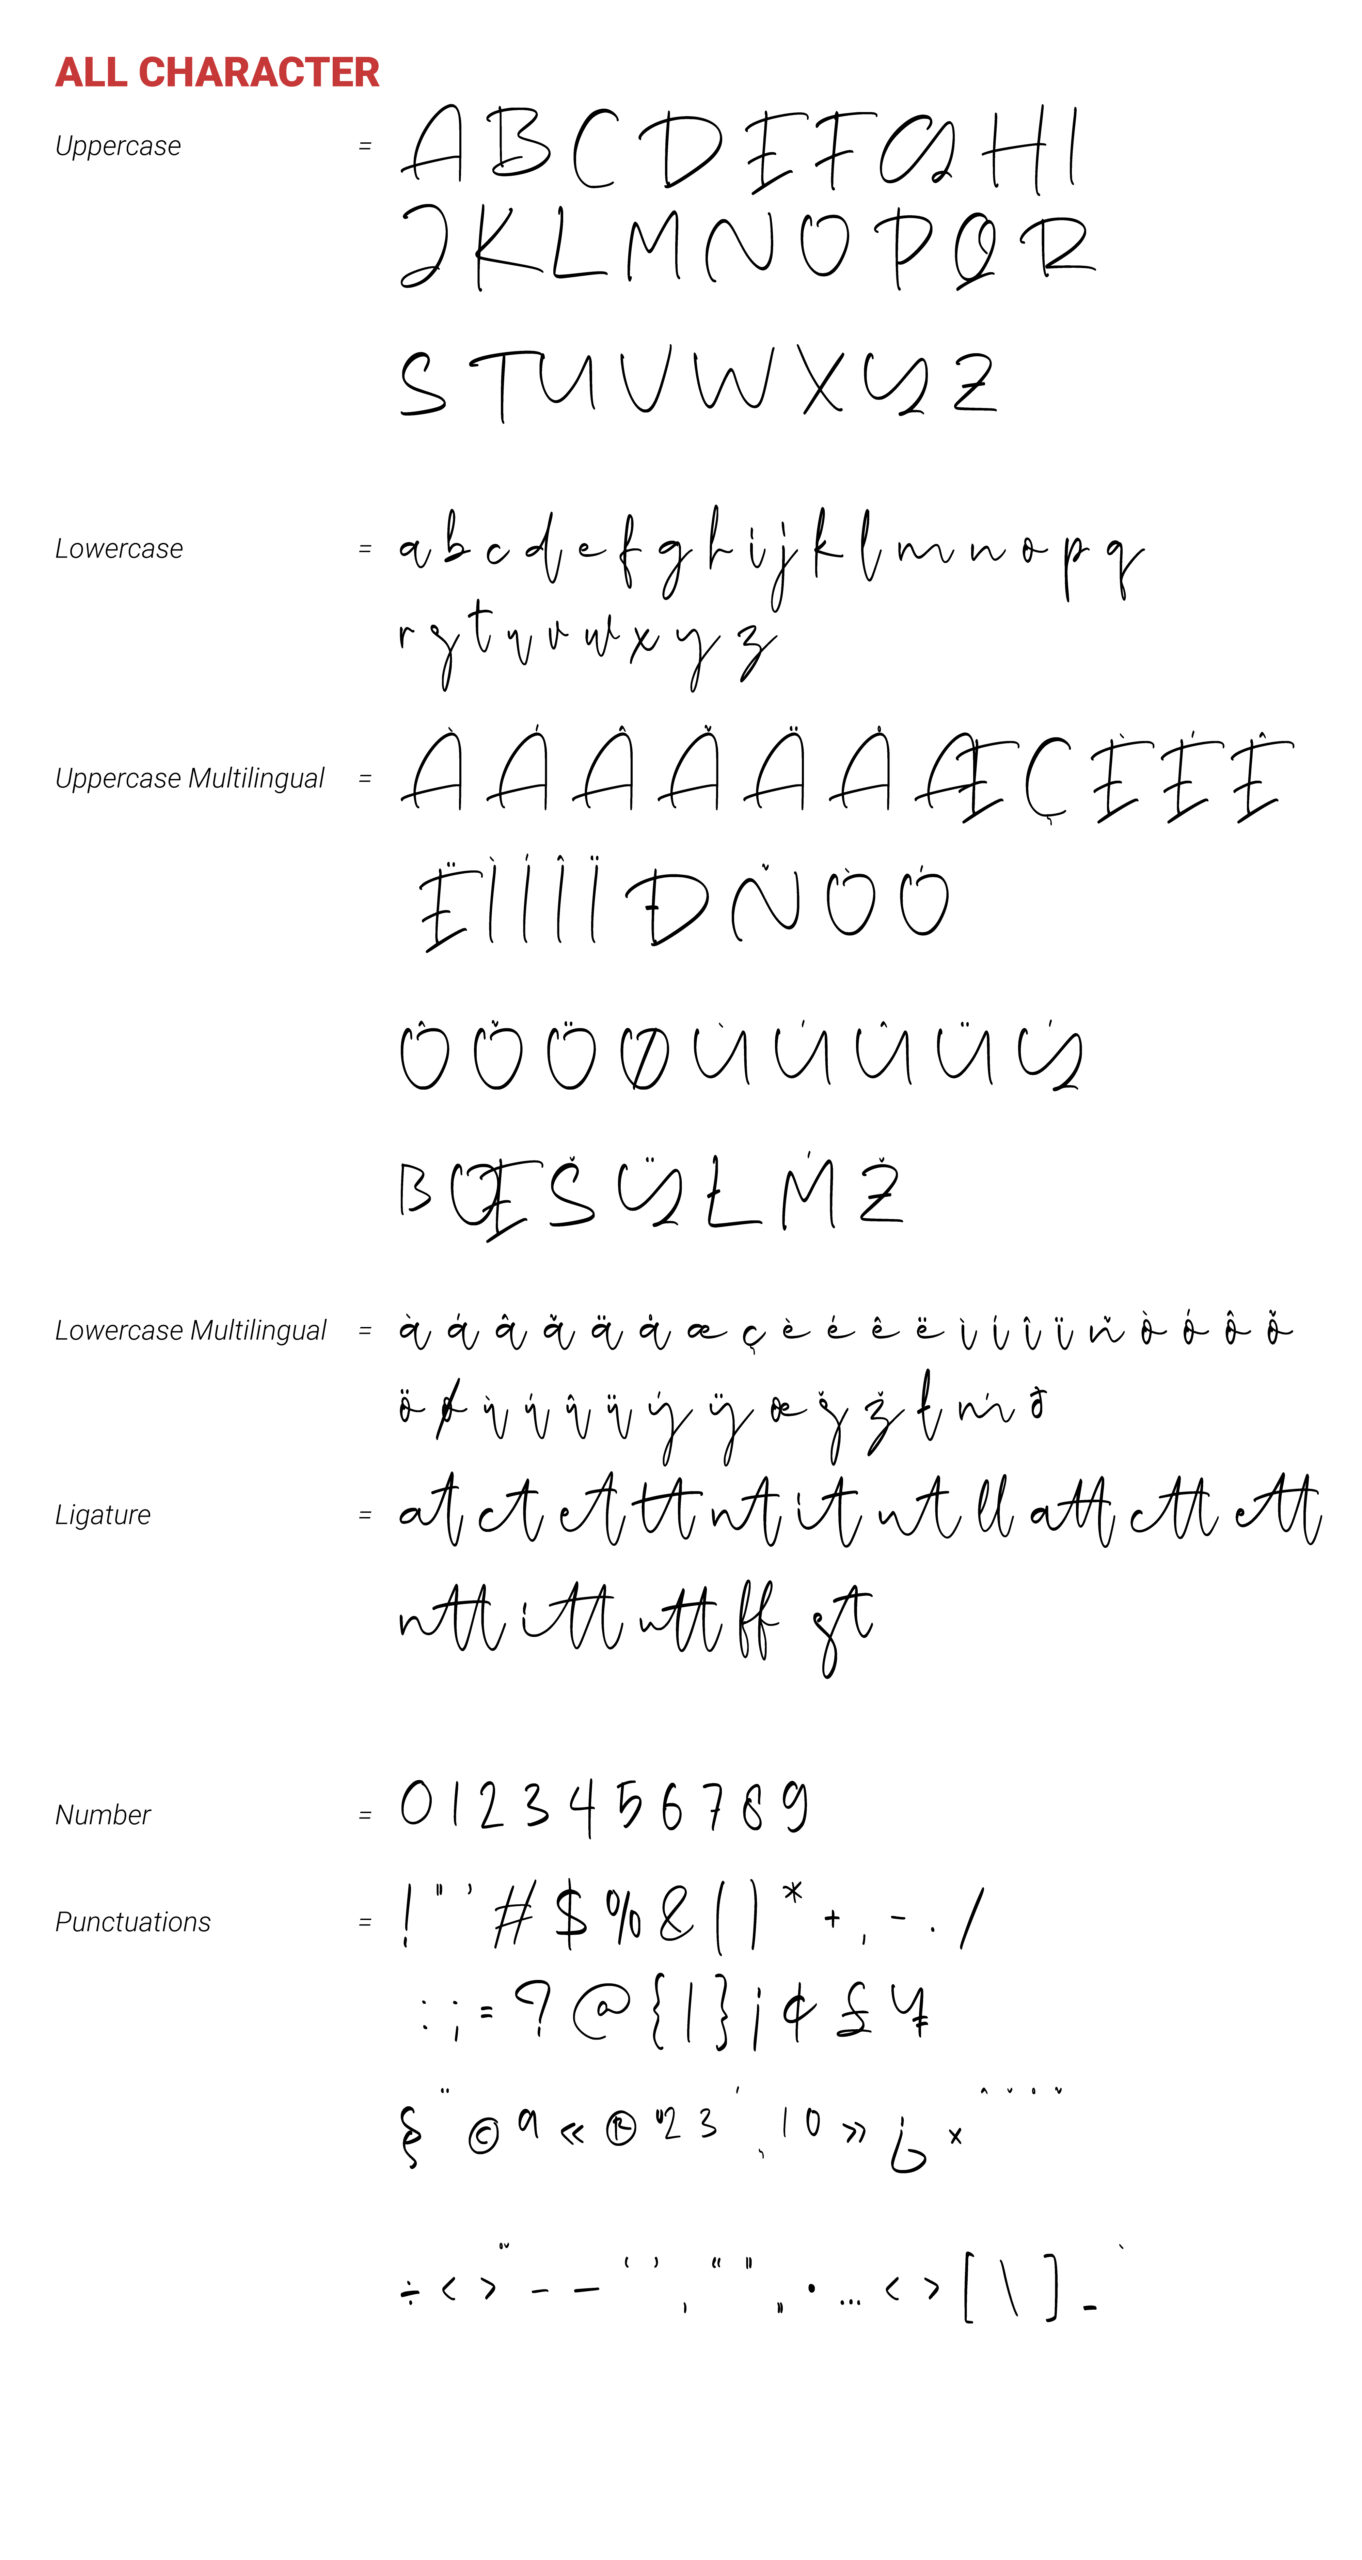 ALL CHARACTER
Uppercase = A B C D E F G H I
J K L M N O P Q R
S T U V W X Y Z
Lowercase = a b c d e f g h i j k l m n o p q
r s t u v w x y z
Uppercase Multilingual = À Á Â Ã Ä Å Æ Ç È É Ê
Ë Ì Í Î Ï Ð Ñ Ò Ó
Ô Õ Ö Ø Ù Ú Û Ü Ý
ẞ Œ Š Ÿ Ł Ḿ Ž
Lowercase Multilingual = à á â ã ä å æ ç è é ê ë ì í î ï ñ ò ó ô õ
ö ø ù ú û ü ý ÿ œ š ž ł ḿ ð
Ligature = at ct et tt nt it ut ll att ctt ett
ntt itt utt ff st
Number = 0 1 2 3 4 5 6 7 8 9
Punctuations = ! " ' # $ % & ( ) * + , - . /
: ; = ? @ { | } ¡ ¢ £ ¥
§ ¨ © ª « ® ° ² ³ ´ ¸ ¹ º » ¿ × ˆ ˇ ˚ ˜
÷ < > ˝ – — ‘ ’ ‚ “ ” „ • … ‹ › [ \ ] _ `